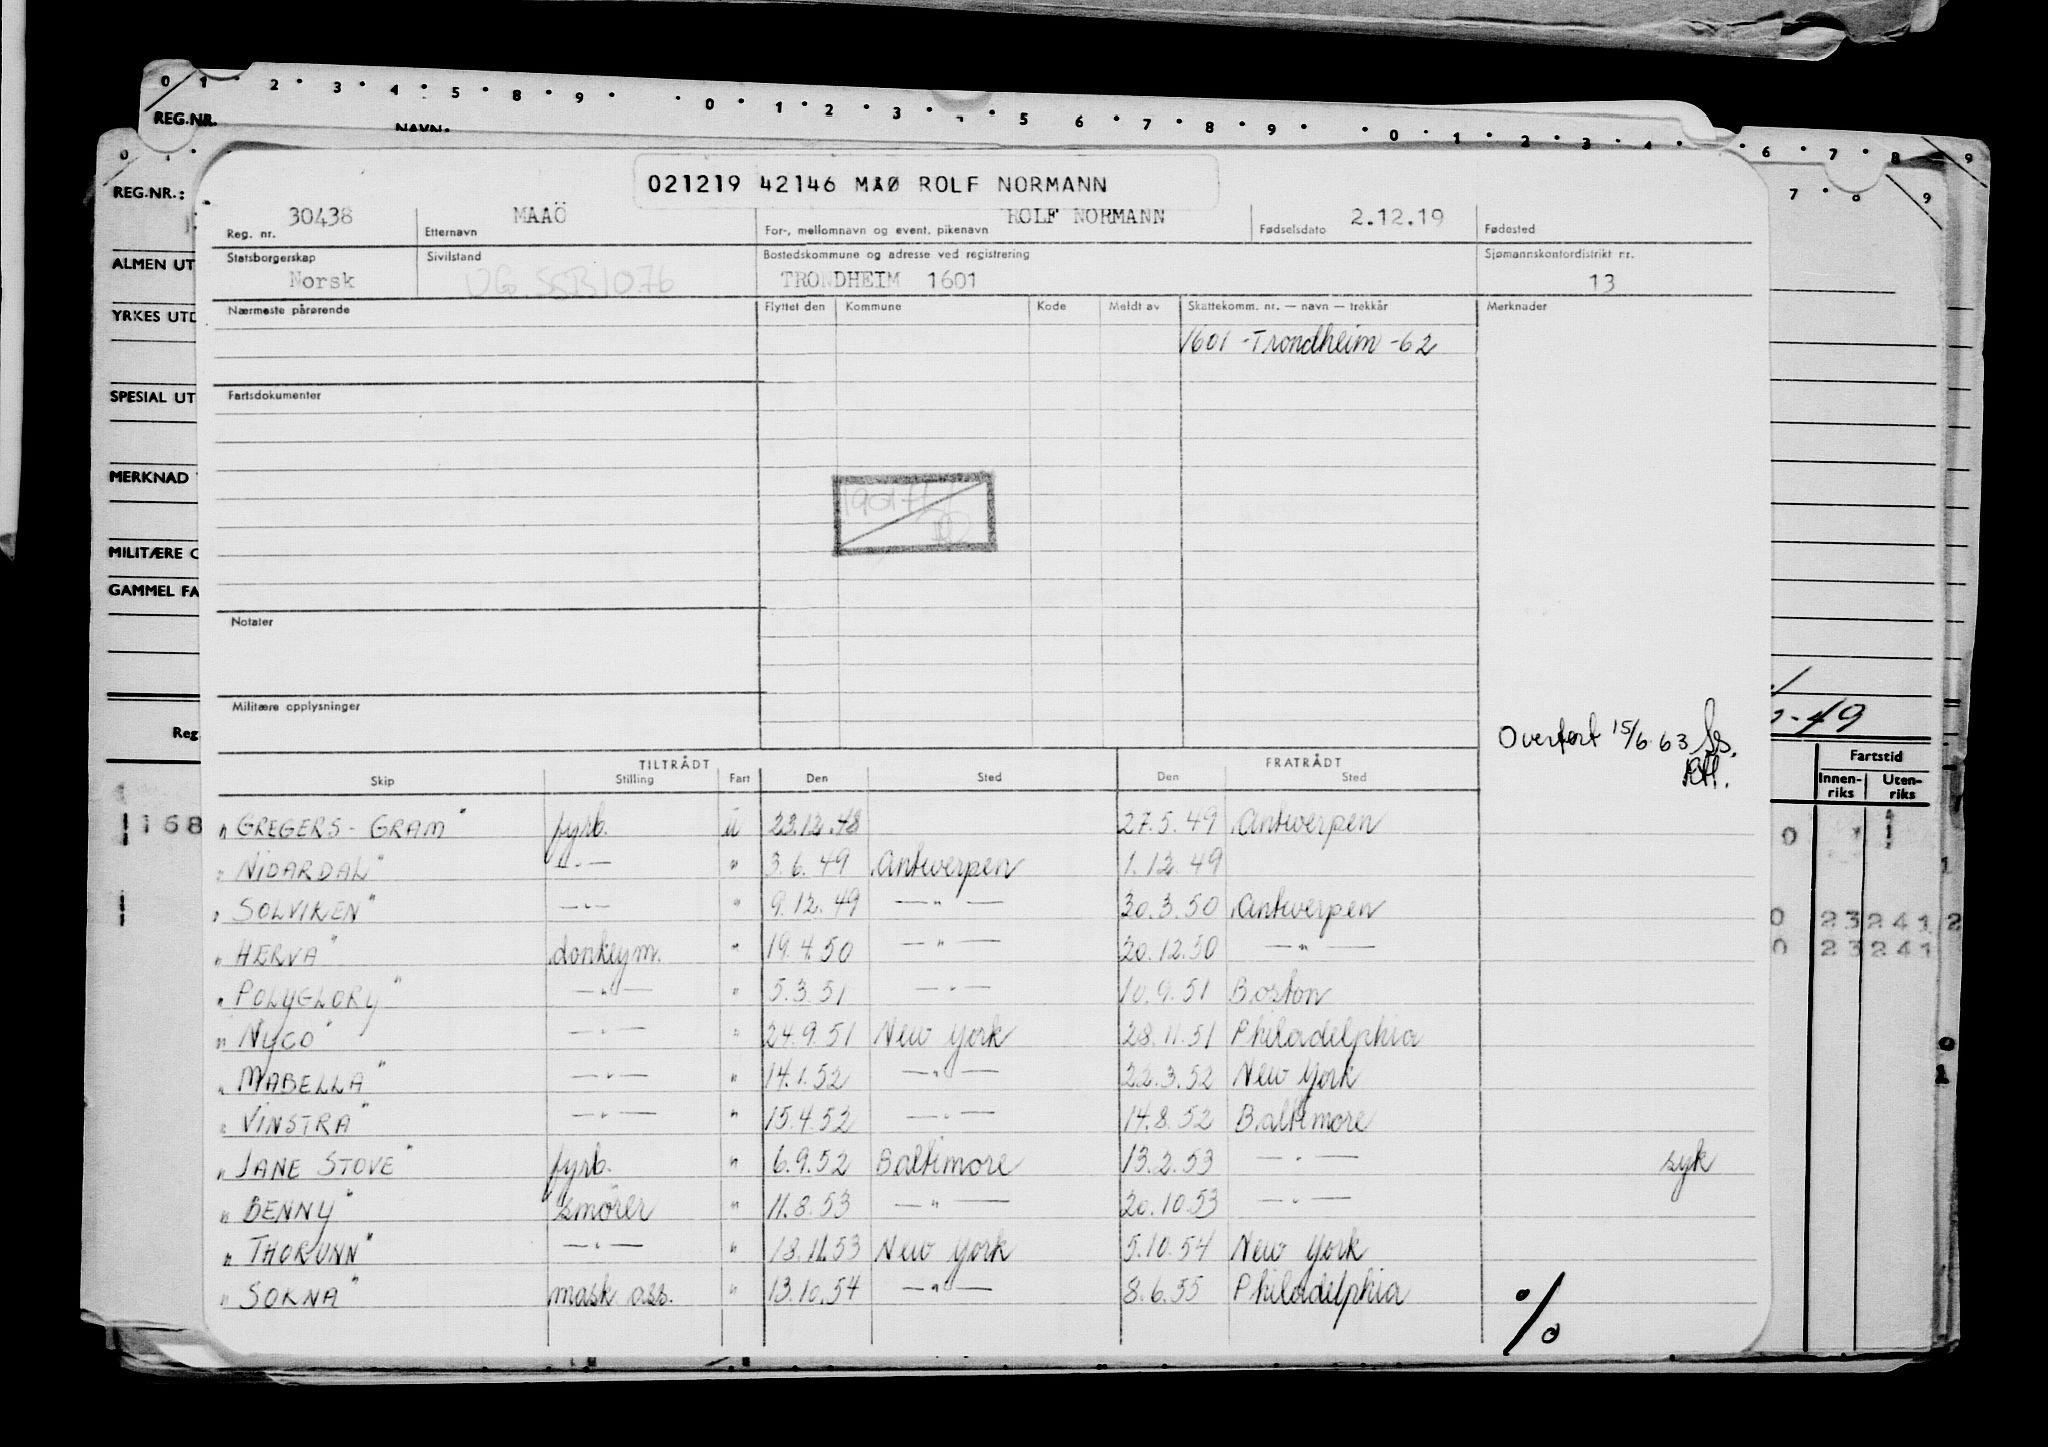 0 1 2 3 4 5 8 9 0 1 2 3 5 6 7 8 9 0 1 2 3 4
REG.NR. NAVN:
6 7 8 9
REG.NR.:
7 8 9
021219 42146 MAØ ROLF NORMANN
30438 MAAÖ ROLF NORMANN 2.12.19
Reg. nr. Etternavn For-, mellomnavn og event. pikenavn Fødselsdato Fødested
Statsborgerskap Sivilstand Bostedskommune og adresse ved registrering Sjømannskontordistrikt nr.
Norsk TRONDHEIM 1601 13
ALMEN UT
Nærmeste pårørende Flyttet den Kommune Kode Meldt av Skattekomm. nr. — navn — trekkår Merknader
YRKES UTD
1601 -Trondheim -62
SPESIAL UT
Fartsdokumenter
MERKNAD
MILITÆRE O
GAMMEL FA
Notater
Militære opplysninger
Overført 15/6 63
-49
Reg
Fartstid
Innen-riks Uten-riks
TILTRÅDT FRATRÅDT
Skip Stilling Fart Den Sted Den Sted
" GREGERS - GRAM" fyrb. u 23.12.48 27.5.49 Antwerpen
" NIDARDAL" —"— " 3.6.49 Antwerpen 1.12.49
" SOLVIKEN" —"— " 9.12.49 —"— 30.3.50 Antwerpen
" HERVA" donkeym. " 19.4.50 —"— 20.12.50 —"—
" POLYGLORY" —"— " 5.3.51 —"— 10.9.51 Boston
" NYCO" —"— " 24.9.51 New York 28.11.51 Philadelphia
" MABELLA" —"— " 14.1.52 —"— 22.3.52 New York
" VINSTRA" —"— " 15.4.52 —"— 14.8.52 Baltimore
" JANE STOVE" fyrb. " 6.9.52 Baltimore 13.2.53 —"— syk
" BENNY" smörer " 11.8.53 —"— 20.10.53 —"—
" THORUNN" —"— " 18.11.53 New York 5.10.54 New York
" SOKNA" mask ass. " 13.10.54 —"— 8.6.55 Philadelphia
%
1 158
0
0 23 241 2
0 23 241